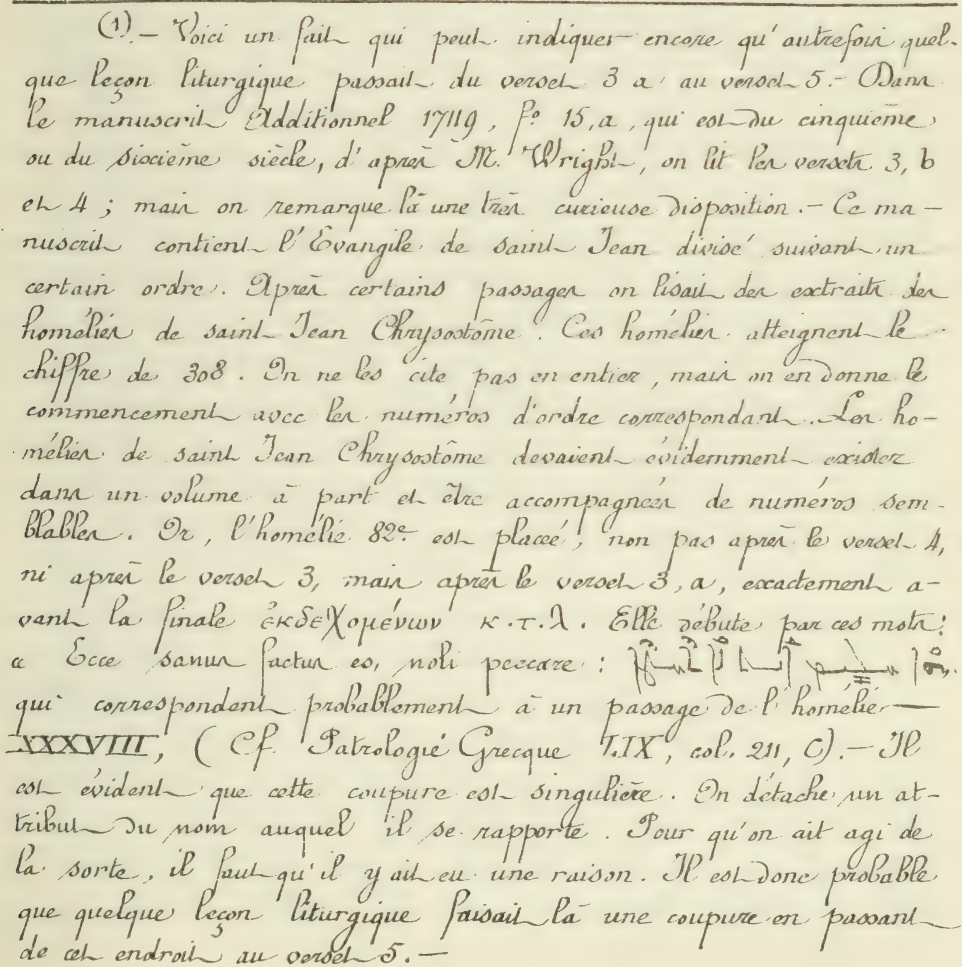 (1).- Voici un fait qui peut indiquer encore qu'autrefois quel-
que leçon liturgique passait du verset 3 a au verset 5.- Dans
le manuscrit Additionnel 17119, f.º 15, a, qui est du cinquième
ou du sixième siècle, d'après M. Wright, on lit les versets 3, b
et 4 ; mais on remarque là une très curieuse disposition.- Ce ma-
nuscrit contient l'Evangile de saint Jean divisé suivant un
certain ordre. Après certains passages on lisait des extraits des
homélies de saint Jean Chrysostôme. Ces homélies atteignent le
chiffre de 308. On ne les cite pas en entier, mais on en donne le
commencement avec les numéros d'ordre correspondant. Les ho-
mélies de saint Jean Chrysostôme devaient évidemment exister
dans un volume à part et être accompagnées de numéros sem-
blables. Or, l'homélie 82e est placée, non pas après le verset 4,
ni après le verset 3, mais après le verset 3, a, exactement a-
vant la finale ἐκδεχομένων κ.τ.λ. Elle débute par ces mots:
« Ecce sanus factus es, noli peccare :
qui correspondent probablement à un passage de l'homélie —
XXXVIII, (Cf. Patrologie Grecque LIX, col. 211, C).- Il
est évident que cette coupure est singulière. On détache un at-
tribut du nom auquel il se rapporte. Pour qu'on ait agi de
la sorte, il faut qu'il y ait eu une raison. Il est donc probable
que quelque leçon liturgique faisait là une coupure en passant
de cet endroit au verset 5.—